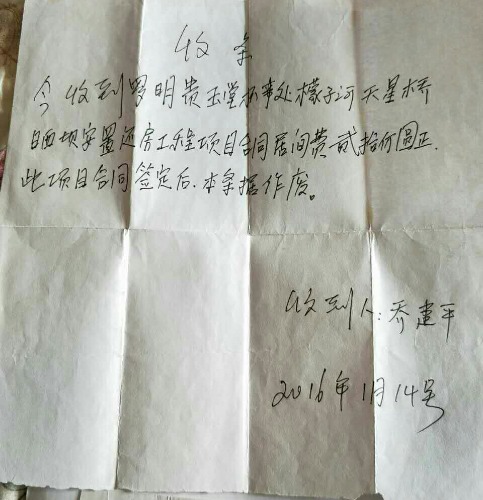 收条
今收到罗明贵玉堂办事处檬子河天星桥
白西坝安置还房工程项目合同居间费贰拾何圆正.
此项目合同签定后.本条据作废。
收到人:乔建平
2016年1月14号